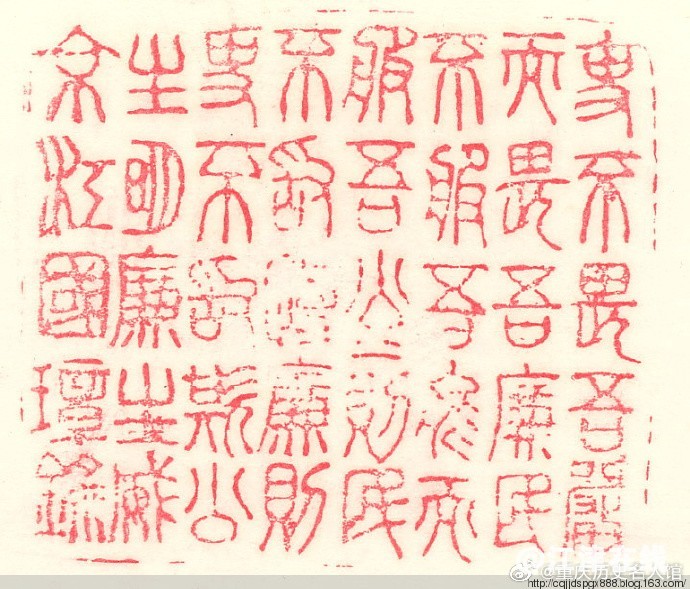 吏不畏吾嚴
而畏吾廉民
不服吾能而
服吾公=則民
不敢慢廉則
吏不敢欺公
生明廉生威
江國環
@重庆历史名人馆
http://cqjjdspgx888.blog.163.com/